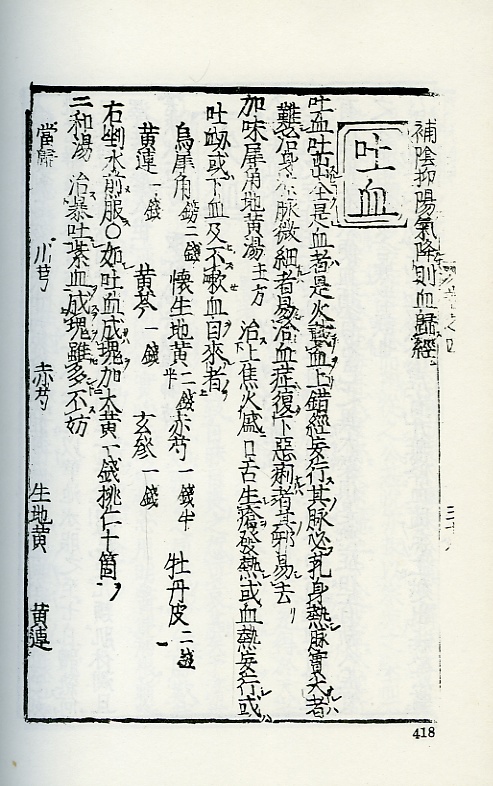 補陰抑陽氣降則血歸經
吐血
吐血吐出全是血者是火載血上錯經妄行其脉必芤身熱脉實大者
難治身凉脉微細者易治血症復下惡痢者其邪易去
加味犀角地黃湯 主方 治上焦火盛口舌生瘡發熱或血熱妄行或
吐衂或下血及不嗽血自來者
烏犀角 鎊二錢 懷生地黃 二錢半 赤芍 一錢半 牡丹皮 二錢
黃連 一錢 黃芩 一錢 玄參 一錢
右剉水煎服○如吐血成塊加大黃一錢桃仁十箇
二和湯 治暴吐紫血成塊雖多不妨
當歸 川芎 赤芍 生地黃 黃連
418